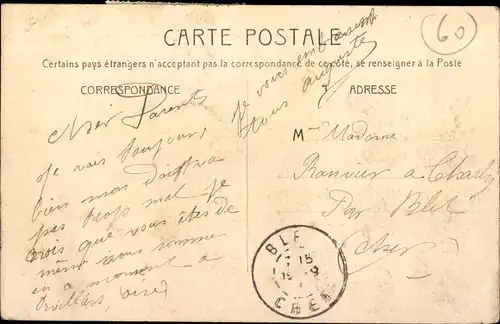 60
CARTE POSTALE
Certains pays étrangers n'acceptant pas la correspondance de ce côté, se renseigner à la Poste
CORRESPONDANCE
ADRESSE
Cher Parents
Je vais toujours
bien mon doigt va
pas trop mal je
crois que vous êtes de
même nous sommes
en a moment a
Orvillers, oise
Je vous embrasse
tous auguste
M Madame
Ranvier a Charly
Par Blet
(cher)
BLET
15
CHER